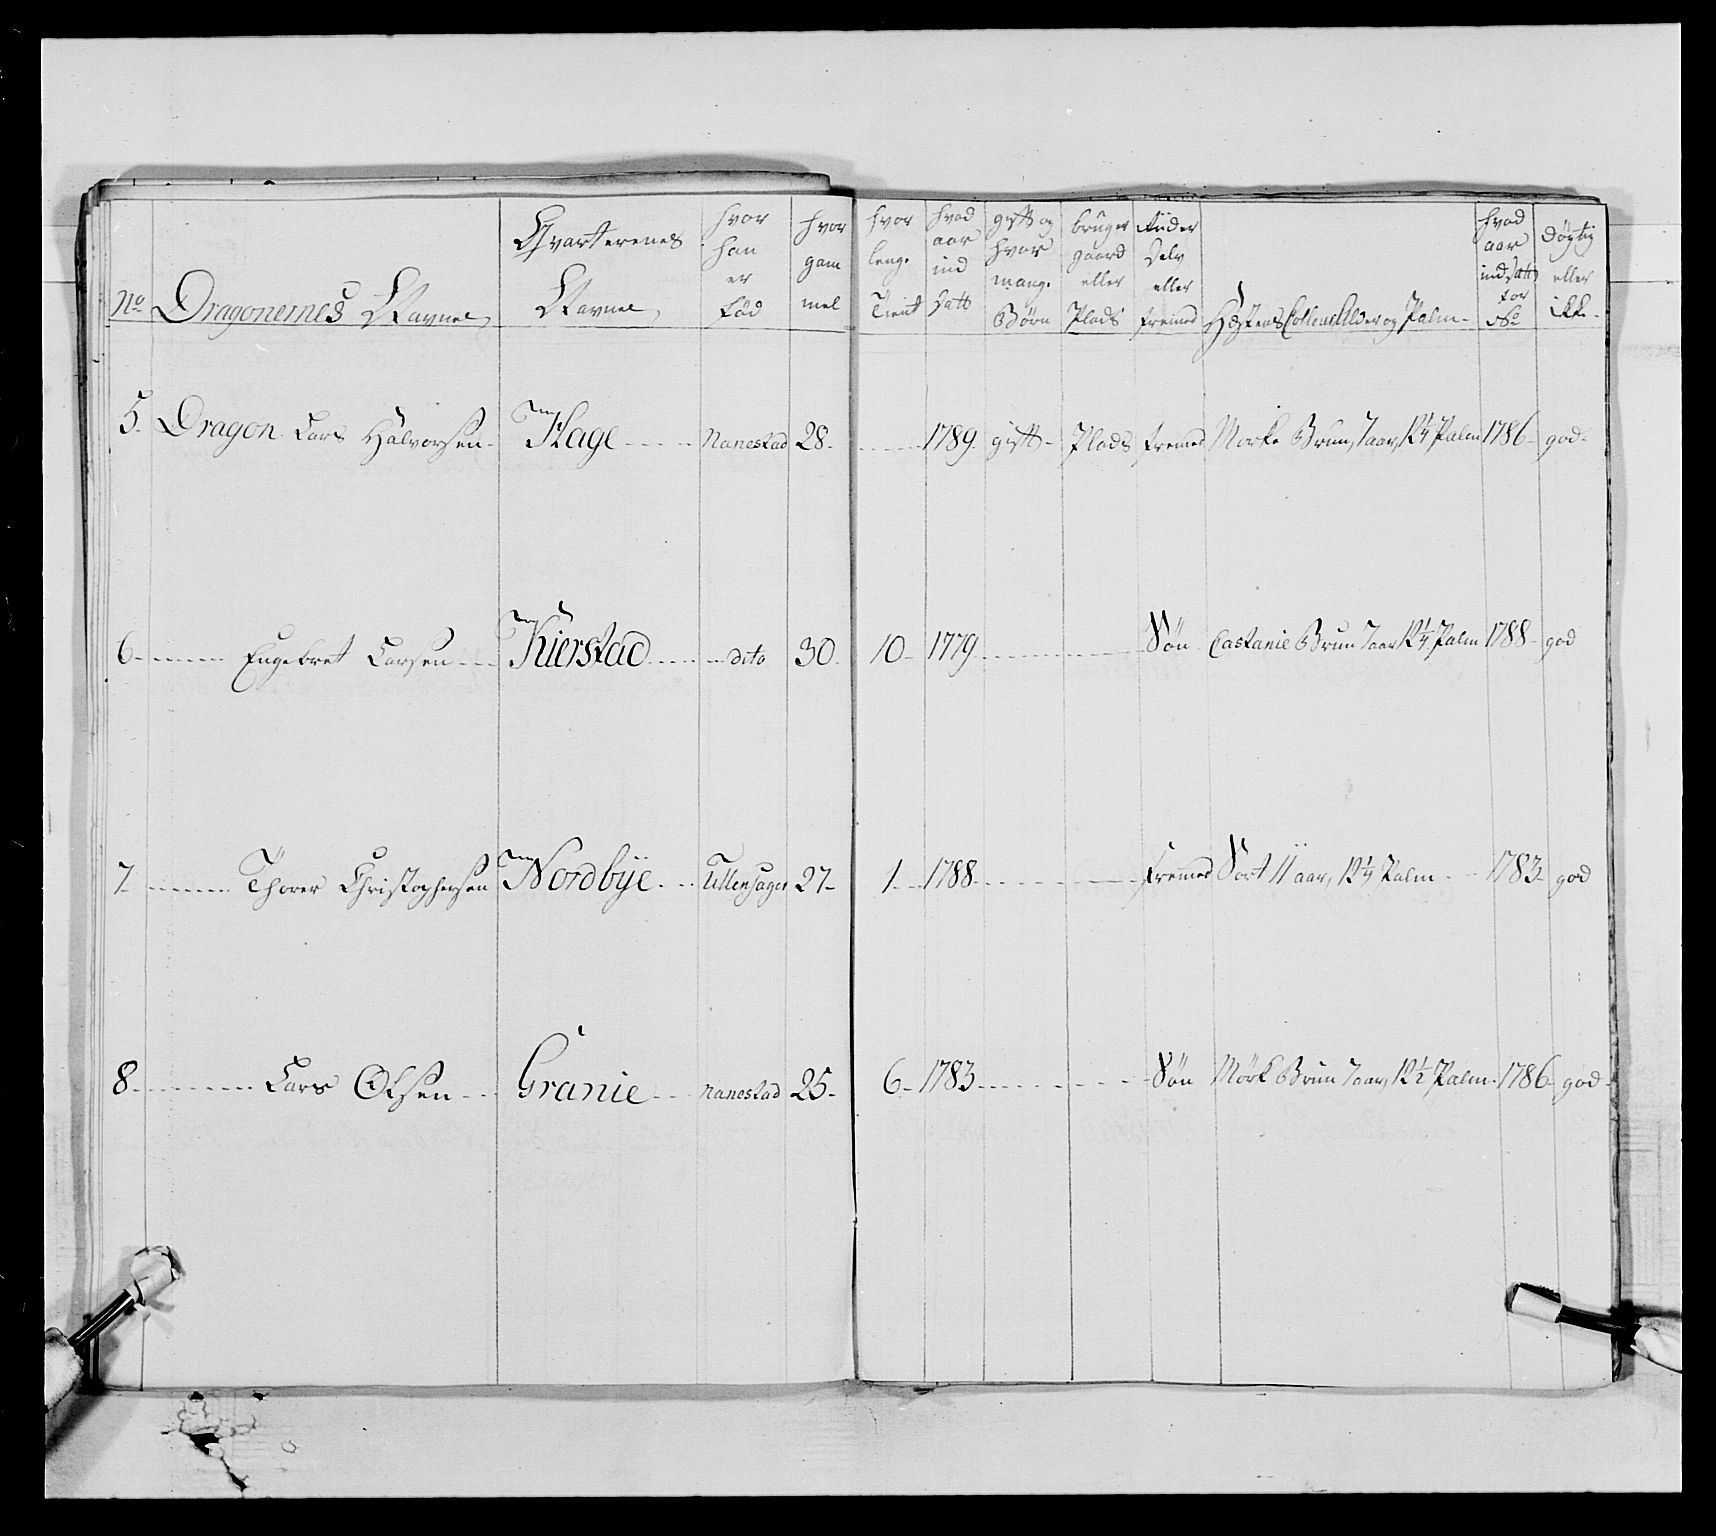 No Dragonernes Navne, Qvarterenes Navne, hvor han er fød hvor gam mel hvor lenge Tient hvad aar ind satt gift og hvor mange Børn bruger gaard eller Plads Riider Selv eller fremed Hæstens Coleur Alder og Palm hvad aar ind Satt for No døgtig eller ikke
5. Dragon Lars Halvorsen Hage Nanestad 28 1789 gift Plads fremed Morke Brun, 7 aar, 12 1/4 Palm 1786 god
6 Engebret Larsen Kierstad dito 30 10 1779 Søn Castanie Brun 7 aar 12 1/4 Palm 1788 god
7 Thorer Christophersen Nordbye Ullensager 27 1 1788 Fremed Sort 11 aar, 12 1/4 Palm 1783 god
8 Lars Olsen Granie Nanestad 25 6 1783 Søn Mörk Brun 7 aar, 12 1/2 Palm 1786 god